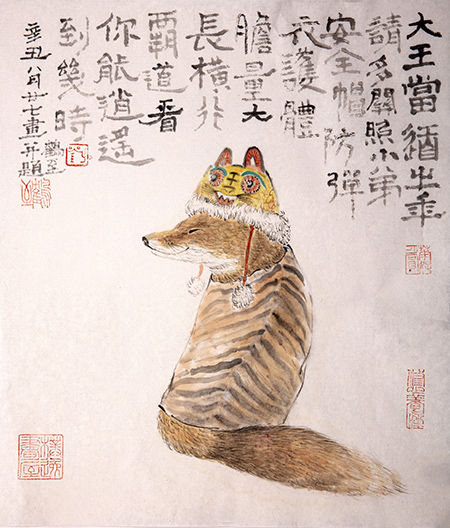 大王當之年
請多關照小弟
安全帽防彈
衣護體
膽量大
長橫行
霸道看
你能逍遙
到幾時
辛丑八月廿七畫并題
王